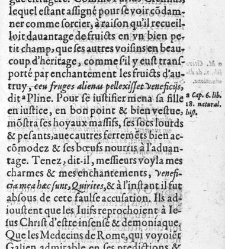 lequel estant assigné pour se voir cōdam-
ner comme sorcier, à raison qu'il recueil-
loit dauantage de fruicts en vn bien pe-
tit champ, que ses autres voisins en beau-
coup d'heritage, comme s'il y eust trans-
porté par enchantement les fruicts d'au-
truy, ceu fruges alienas pellexisset veneficijs,
dit a Pline. Pour se iustifier mena sa fille
en iustice, en bon point & bien vestue,
mōstra ses hoyaux massifs, ses socs lourds
& pesants, auec autres ferremēts bien ac-
cōmodez & ses bœufs nourris à l'aduan-
tage. Tenez, dit-il, messieurs voyla mes
charmes & mes enchantements, venefi-
cia mea hæc sunt, Quirites, & à l'instant il fut
absous de ceste faulse accusation. Ils ad-
ioustent que les Iuifs reprochoient à Ie-
sus Christ d'estre insensé & demoniaque,
Que les Medecins de Rome, qui voyoiēt
Galien admirable en ses predictions &
a Cap. 6. lib.
18. natural.